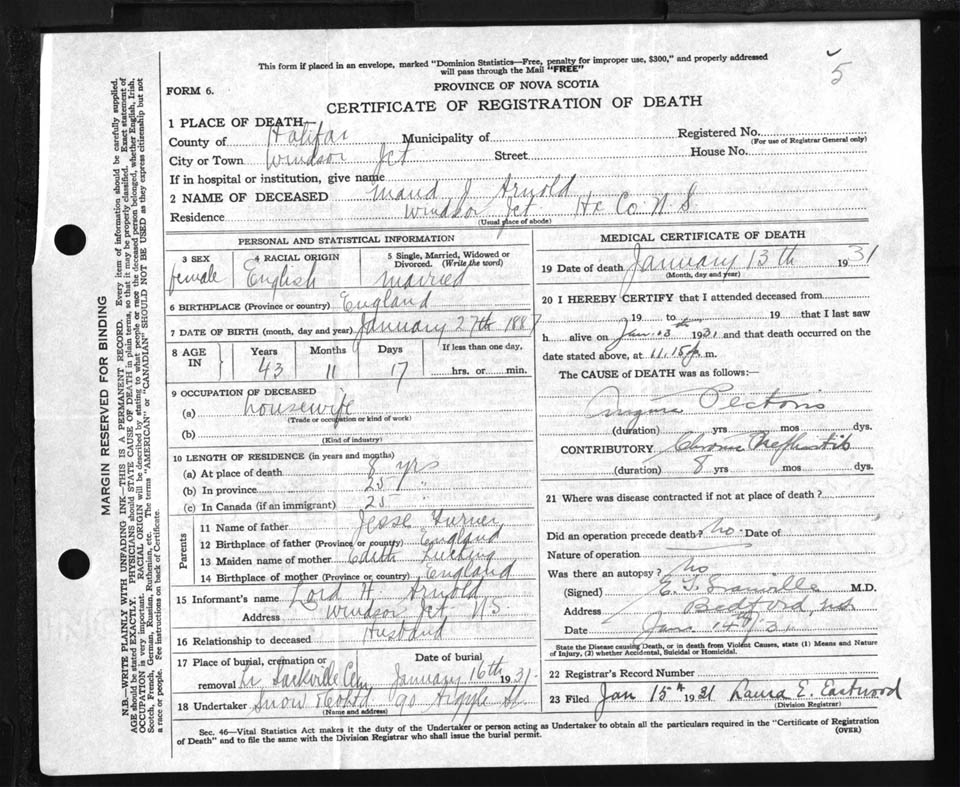 5
This form if placed in an envelope, marked "Dominion Statistics—Free, penalty for improper use, $300," and properly addressed
will pass through the Mail "FREE"
FORM 6.
PROVINCE OF NOVA SCOTIA
CERTIFICATE OF REGISTRATION OF DEATH
1 PLACE OF DEATH
County of Halifax Municipality of Registered No.
(For use of Registrar General only)
City or Town Windsor Jct Street House No.
If in hospital or institution, give name
2 NAME OF DECEASED Maud J Arnold
Residence Windsor Jct Hx Co N S
(Usual place of abode)
PERSONAL AND STATISTICAL INFORMATION
3 SEX 4 RACIAL ORIGIN 5 Single, Married, Widowed or
Divorced. (Write the word)
female English Married
6 BIRTHPLACE (Province or country) England
7 DATE OF BIRTH (month, day and year) January 27th 1887
8 AGE IN Years Months Days If less than one day,
43 11 17 hrs. or min.
9 OCCUPATION OF DECEASED
(a) housewife
(Trade or occupation or kind of work)
(b)
(Kind of industry)
10 LENGTH OF RESIDENCE (in years and months)
(a) At place of death 8 yrs
(b) In province 25 "
(c) In Canada (if an immigrant) 25
Parents
11 Name of father Jesse Turner
12 Birthplace of father (Province or country) England
13 Maiden name of mother Edith
14 Birthplace of mother (Province or country) England
15 Informant's name H. Arnold
Address Windsor Jct N S
16 Relationship to deceased Husband
17 Place of burial, cremation or Date of burial
removal Lr Sackville Cem January 16th 1931
18 Undertaker Snow & Co Ltd 90 Argyle St.
(Name and address)
MEDICAL CERTIFICATE OF DEATH
19 Date of death January 13th 1931
(Month, day and year)
20 I HEREBY CERTIFY that I attended deceased from
19 to 19 that I last saw
h alive on Jan. 13th 1931 and that death occurred on the
date stated above, at 11.15 p. m.
The CAUSE of DEATH was as follows:—
Angina Pectoris
(duration) yrs mos dys.
CONTRIBUTORY Chronic Nephritis
(duration) 8 yrs mos dys.
21 Where was disease contracted if not at place of death?
Did an operation precede death? No. Date of
Nature of operation
Was there an autopsy? No
(Signed) M.D.
Address Bedford, N.S.
Date Jan. 14th/31
State the Disease causing Death, or in death from Violent Causes, state (1) Means and Nature
of Injury, (2) whether Accidental, Suicidal or Homicidal.
22 Registrar's Record Number
23 Filed Jan 15th 1931 Laura E. Eastwood
(Division Registrar)
Sec. 46—Vital Statistics Act makes it the duty of the Undertaker or person acting as Undertaker to obtain all the particulars required in the "Certificate of Registration
of Death" and to file the same with the Division Registrar who shall issue the burial permit. (OVER)
MARGIN RESERVED FOR BINDING
N.B.—WRITE PLAINLY WITH UNFADING INK—THIS IS A PERMANENT RECORD. Every item of information should be carefully supplied.
AGE should be stated EXACTLY. PHYSICIANS should STATE CAUSE OF DEATH in plain terms, so that it may be properly classified. Exact statement of
OCCUPATION is very important. RACIAL ORIGIN will be described by stating to what people or race the deceased person belonged, whether English, Irish,
Scotch, French, German, Russian, Ruthenian, etc. The terms "AMERICAN" or "CANADIAN" SHOULD NOT BE USED as they express citizenship but not
a race or people. Fee instructions on back of Certificate.